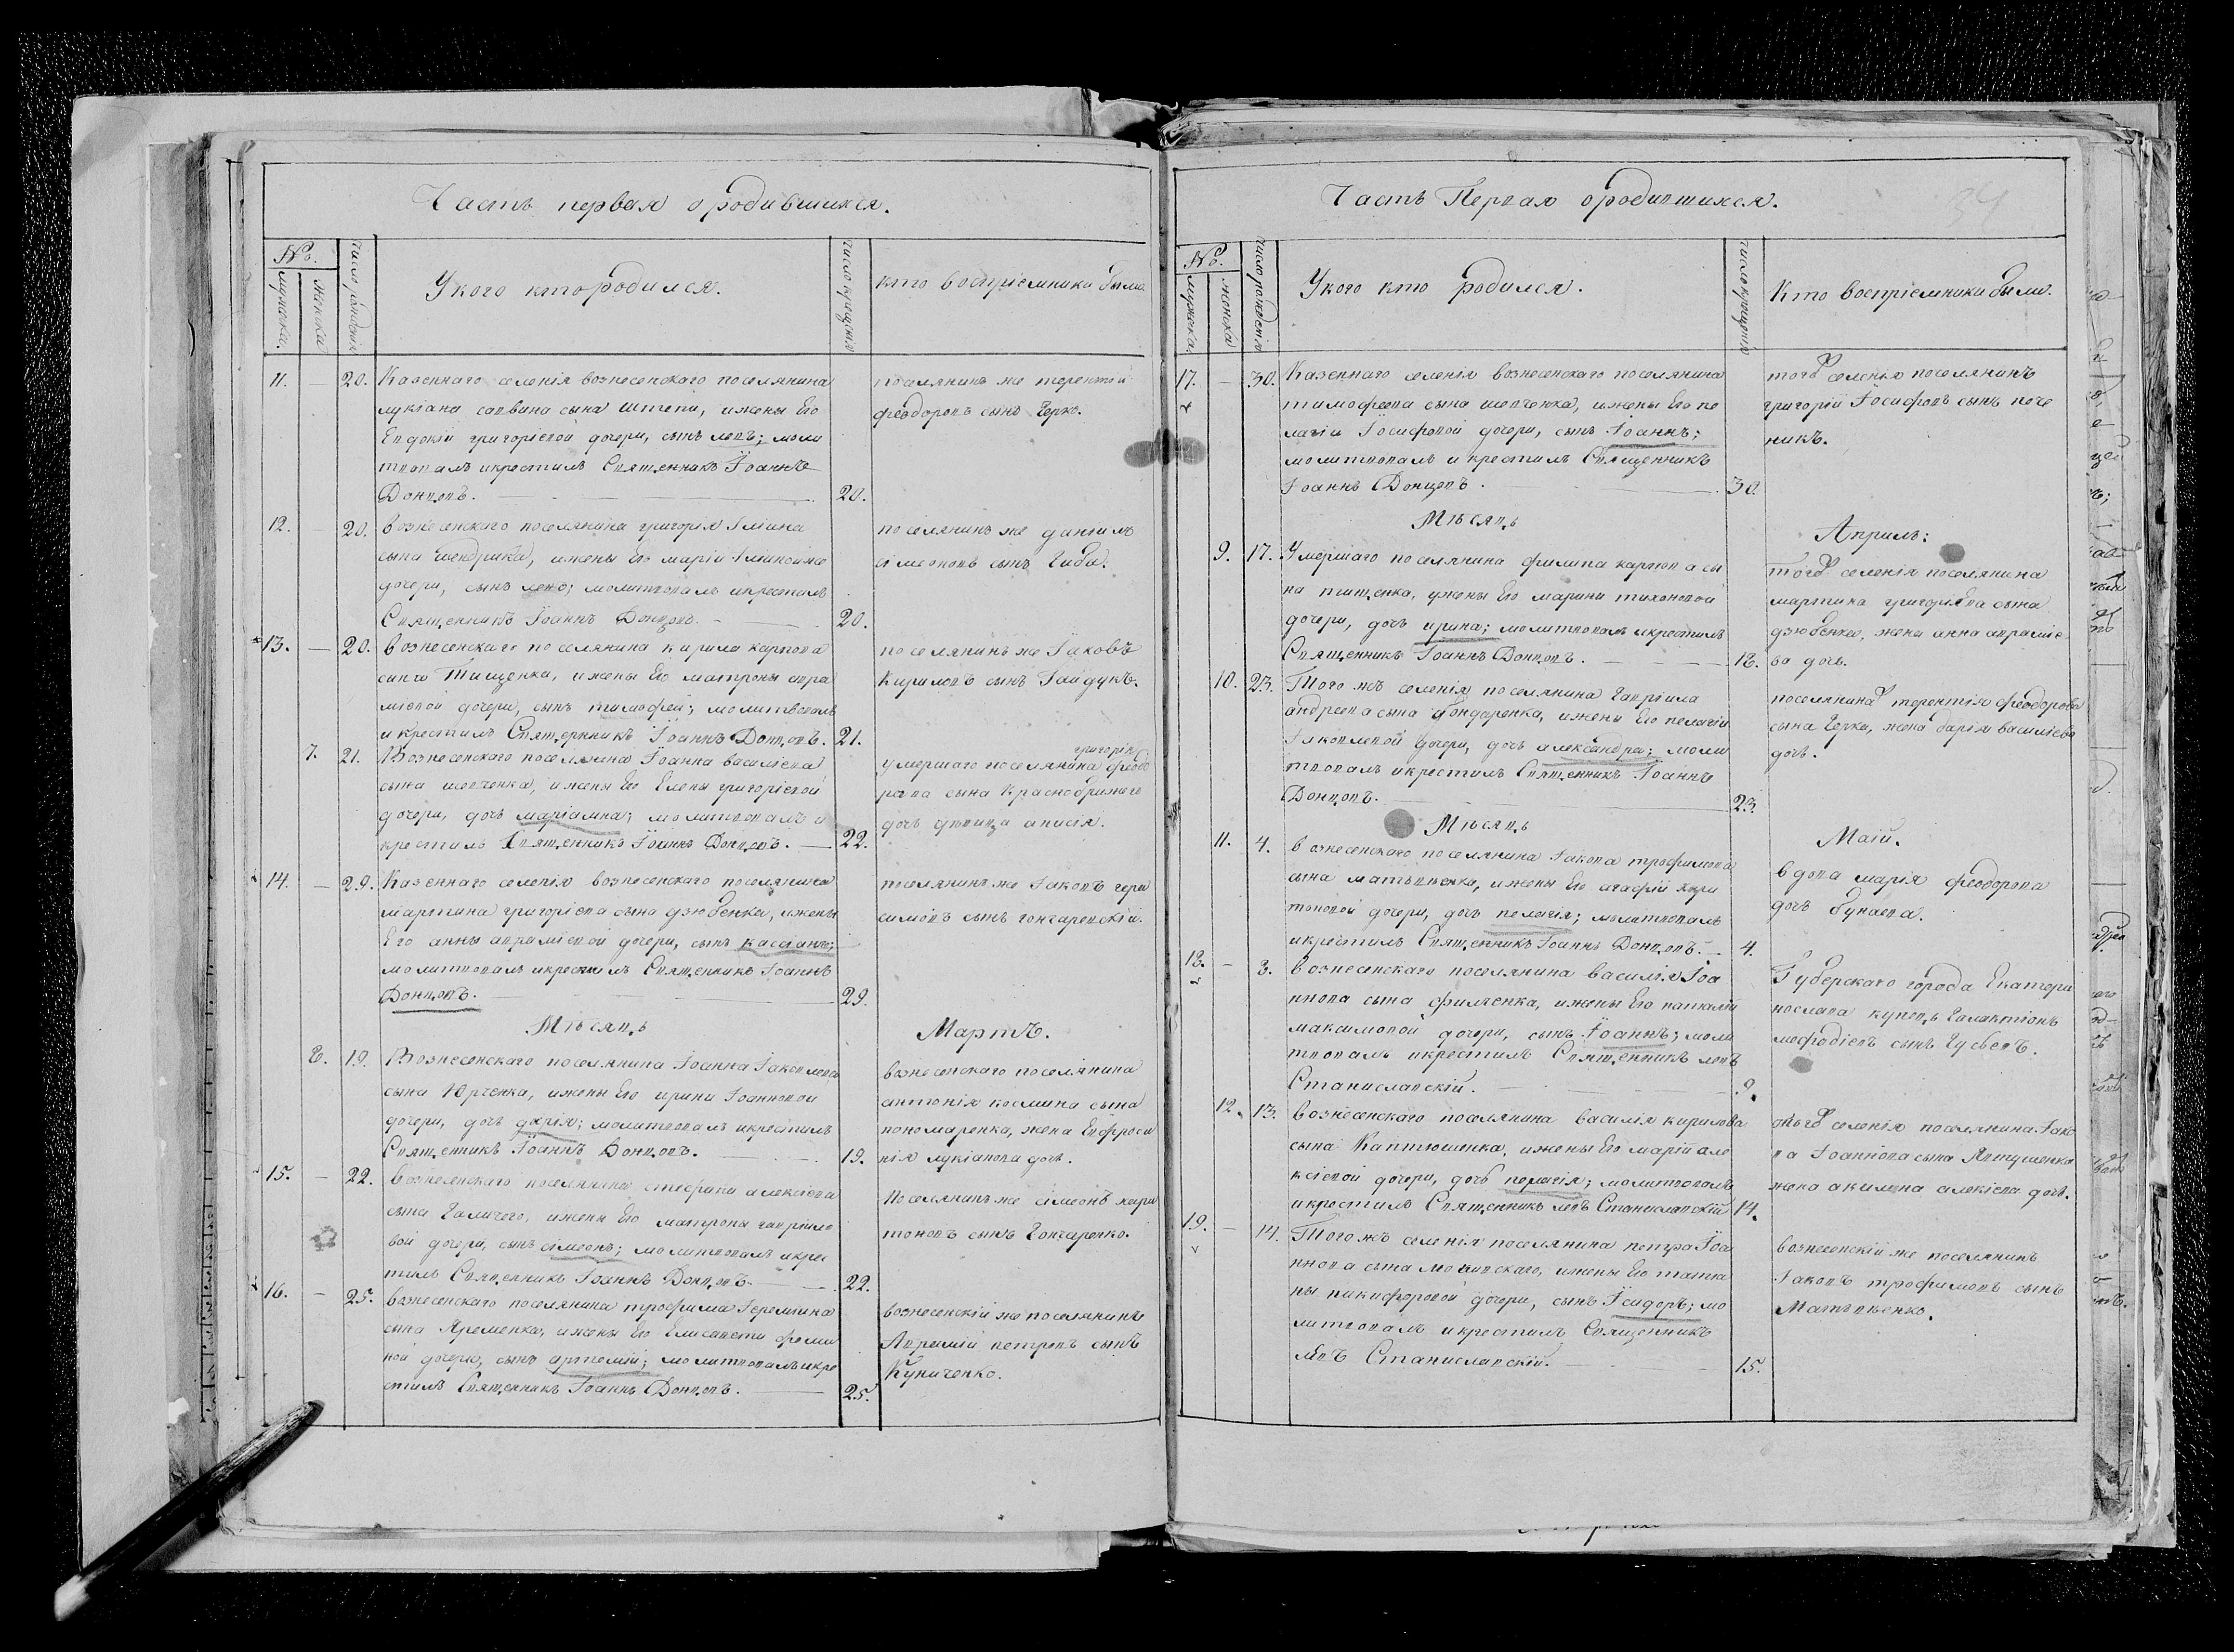 Часть первая о родившихся.
№.
мужеска.
женска
число рождения
У кого кто родился.
число крещения
кто восприемники были.
11. — 20. Казеннаго селенія вознесенскаго поселянина
лукіана саввина сына Штепи, и жены Его
Евдокіи григоріевой дочери, сынъ левъ; моли
твовалъ и крестилъ Священникъ Іоаннъ
Донцовъ. — 20.
поселянинъ же терентій
феодоровъ сынъ Черко.
12. — 20. Вознесенскаго поселянина григорія
сына Шендрика, и жены Его маріи
дочери, сынъ левъ; молитвовалъ и крестилъ
Священникъ Іоаннъ Донцовъ. — 20.
поселянинъ же даніилъ
сімеоновъ сынъ
13. — 20. Вознесенскаго поселянина кирила карпова
сына Тищенка, и жены Его матроны авра
міевой дочери, сынъ тимофей; молитвовалъ
и крестилъ Священникъ Іоаннъ Донцовъ. 21.
поселянинъ же Іаковъ
Кириловъ сынъ Гайдукъ.
7. 21. Вознесенскаго поселянина Іоанна василіева
сына шевченка, и жены Его Елены григоріевой
дочери, дочь маріамна; молитвовалъ и
крестилъ Священникъ Іоаннъ Донцовъ. — 22.
григорія
умершаго поселянина феодо
рова сына Краснобрижаго
дочь девица анисія.
14. — 29. Казеннаго селенія вознесенскаго поселянина
мартина григоріева сына дзюбенка, и жены
Его анны авраміевой дочери, сынъ кассіанъ;
молитвовалъ и крестилъ Священникъ Іоаннъ
Донцовъ. — 29.
поселянинъ же Іаковъ гера
симовъ сынъ гончаревскій.
Мѣсяцъ Мартъ.
8. 19. Вознесенскаго поселянина Іоанна Іаковлева
сына Юрченка, и жены Его ирины Іоанновой
дочери, дочь дарія; молитвовалъ и крестилъ
Священникъ Іоаннъ Донцовъ. — 19.
вознесенскаго поселянина
антонія космина сына
пономаренка, жена Евфроси
нія лукіанова дочь.
15. — 22. Вознесенскаго поселянина стефана алексіева
сына Галичего, и жены Его матроны гавріило
вой дочери, сынъ сімеонъ; молитвовалъ и крес
тилъ Священникъ Іоаннъ Донцовъ. — 22.
Поселянинъ же сімеонъ хари
тоновъ сынъ Гончаренко.
16. — 25. Вознесенскаго поселянина трофима Іереміина
сына Яременка, и жены Его Елисавети фоми
ной дочери, сынъ артемій; молитвовалъ и кре
стилъ Священникъ Іоаннъ Донцовъ. — 25.
вознесенскій же поселянинъ
Аврамій петровъ сынъ
Куниченко.
Часть Первая о родившихся.
34
№.
мужеска.
женска
число рожденія
У кого кто родился.
число крещенія
Кто восприемники были.
17. — 30. Казеннаго селенія вознесенскаго поселянина
тимофеева сына шевченка, и жены Его пе
лагіи Іосифовой дочери, сынъ Іоаннъ;
молитвовалъ и крестилъ Священникъ
Іоаннъ Донцовъ. — 30.
того селенія поселянинъ
григорій Іосифовъ сынъ
Мѣсяцъ Априль:
9. 17. Умершаго поселянина филипа карпова сы
на тищенка, у жены Его марины тихоновой
дочери, дочь ирина; молитвовалъ и крестилъ
Священникъ Іоаннъ Донцовъ. — 18.
того селенія поселянина
мартина григоріева сына
дзюбенка, жена анна авраміе
ва дочь.
10. 23. Того жъ селенія поселянина гавріила
андреева сына бондаренка, и жены Его пелагіи
Іаковлевой дочери, дочь александра; моли
твовалъ и крестилъ Священникъ Іоаннъ
Донцовъ. — 23.
поселянина терентія феодорова
сына Черка, жена дарія василіева
дочь.
Мѣсяцъ Маій.
11. 4. Вознесенскаго поселянина Іакова трофимова
сына матвѣенка, и жены Его агафіи хари
тоновой дочери, дочь пелагія; молитвовалъ
и крестилъ Священникъ Іоаннъ Донцовъ. — 4.
вдова марія феодорова
дочь бунаева.
18. — 8. Вознесенскаго поселянина василія Іоа
ннова сына филченка, и жены Его наталіи
максимовой дочери, сынъ Іоаннъ; моли
твовалъ и крестилъ Священникъ левъ
Станиславскій. — 9.
Губерскаго города Екатери
нослава купецъ Галактіонъ
мефодіевъ сынъ Гусьевъ.
12. 13. Вознесенскаго поселянина василія кирилова
сына Каптюшенка, и жены Его маріи але
ксіевой дочери, дочь пелагія; молитвовалъ
и крестилъ Священникъ левъ Станиславскій 14.
того селенія поселянина Іако
ва Іоаннова сына Явтушенка
жена акилина алексіева дочь.
19. — 14. Того жъ селенія поселянина петра Іоа
ннова сына и жены Его татія
ны никифоровой дочери, сынъ Ісидоръ; мо
литвовалъ и крестилъ Священникъ
левъ Станиславскій. — 15.
вознесенскій же поселянинъ
Іаковъ трофимовъ сынъ
Матвѣенко.